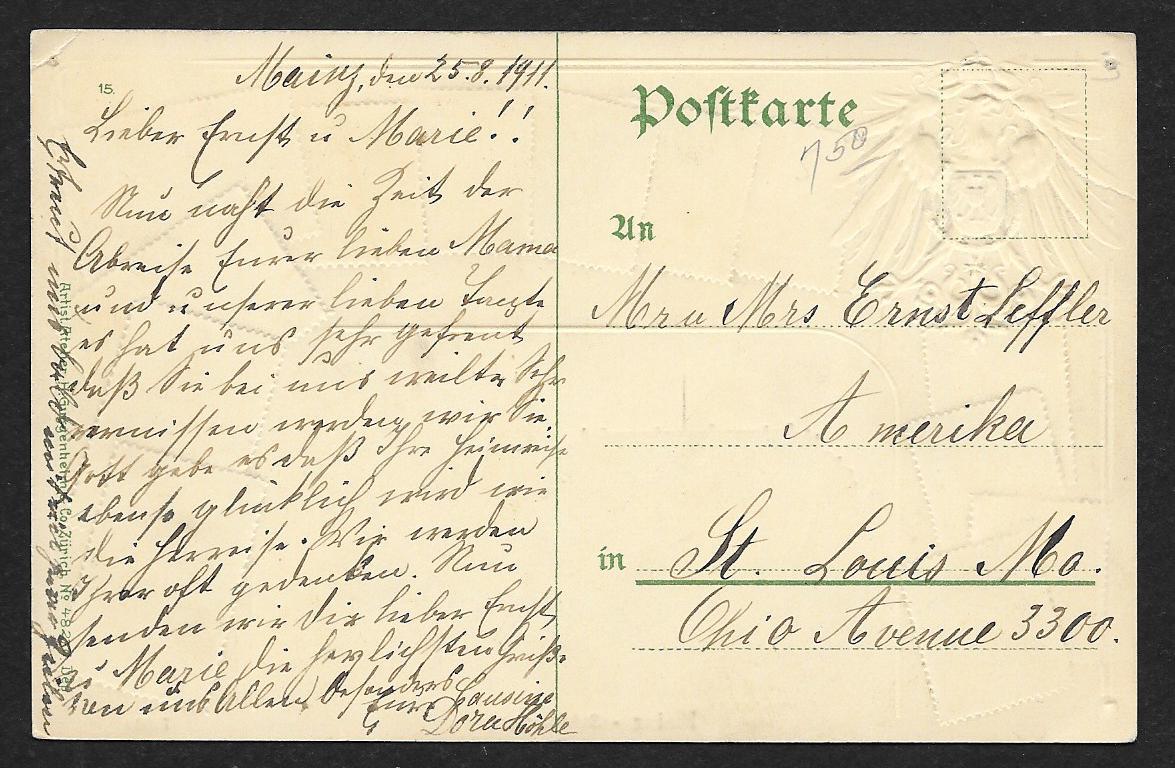 Mainz, den 25.8.1911.
15.
Lieber Ernst u Marie!!
Nun naht die Zeit der
Abreise Eurer lieben Mama
und unserer lieben Tante
es hat uns sehr gefreut
daß Sie bei uns weilte Sehr
vermissen werden wir Sie.
Gott gebe es daß Ihre Heimreise
ebenso glücklich wird wie
die Herreise. Wir werden
Ihrer oft gedenken. Nun
senden wir dir lieber Ernst
u Marie die herzlichsten Grüße
von uns Allen besonders
Eure Cousine
Dora Höhle
Artist. Atelier H. Guggenheim & Co., Zürich No 482
Postkarte
750
An
Mr u Mrs Ernst Leffler
Amerika
in St. Louis Mo.
Ohio Avenue 3300.